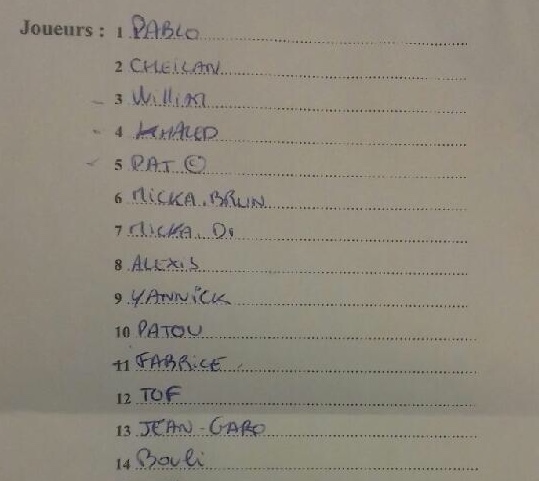 Joueurs : 1 PABLO
2 CHEILAN
3 William
4 KHALED
5 PAT ©
6 MICKA.BRUN
7 MICKA. Di
8 ALEXIS
9 YANNICK
10 PATOU
11 FABRICE
12 TOF
13 JEAN-GABO
14 Bouli